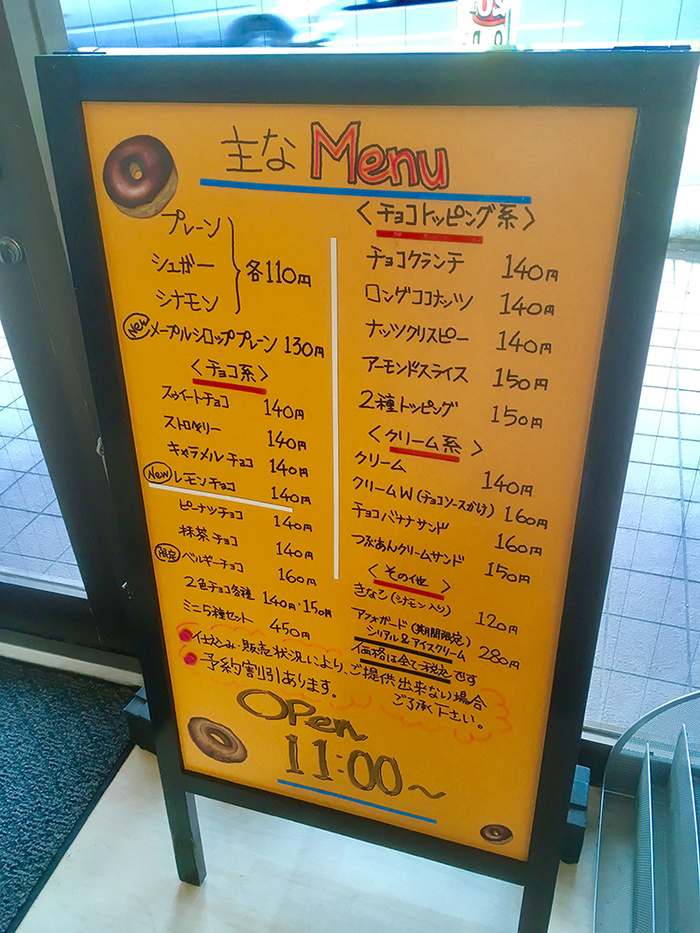 主な Menu
プレーン
シュガー
シナモン
各110円
New メープルシロッププレーン 130円
〈チョコ系〉
スウィートチョコ 140円
ストロベリー 140円
キャラメルチョコ 140円
New レモンチョコ 140円
ピーナツチョコ 140円
抹茶チョコ 140円
限定 ベルギーチョコ 160円
2色チョコ各種 140円・150円
ミニ5種セット 450円
〈チョコトッピング系〉
チョコクランチ 140円
ロングココナッツ 140円
ナッツクリスピー 140円
アーモンドスライス 150円
2種トッピング 150円
〈クリーム系〉
クリーム 140円
クリームW(チョコソースがけ) 160円
チョコバナナサンド 160円
つぶあんクリームサンド 150円
〈その他〉
きなこ(シナモン入り) 120円
アフォガード(期間限定)
シリアル&アイスクリーム 280円
価格は全て税込です
●仕込み・販売状況により、ご提供出来ない場合
ご了承下さい。
●予約割引あります。
OPen
11:00〜